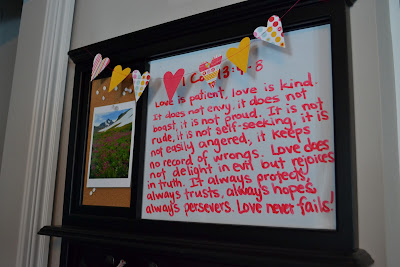 Cor 13:4-8
Love is patient, love is kind.
It does not envy, it does not
boast, it is not proud. It is not
rude, it is not self-seeking, it is
not easily angered, it keeps
no record of wrongs. Love does
not delight in evil but rejoices
in truth. It always protects,
always trusts, always hopes,
always persevers. Love never fails!